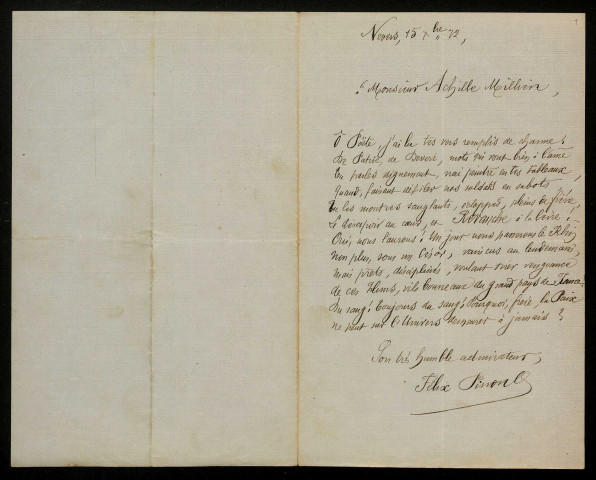 Nevers, 15 Xbre 72,
à Monsieur Achille Millien,
Ô Poëte, j'ai lu tes vers remplis de charme!
De Patrie, de Devoir, mots qui vont bien à l'âme
Tu parles dignement, vrai peintre en tes tableaux,
Quand, faisant défiler nos soldats en sabots
Tu les montres sanglants, éclopés, pleins de fièvre,
Le désespoir au cœur, et Revanche à la lèvre!
Oui, nous l'aurons! Un jour nous passerons le Rhin,
non plus, sous un César, vaincus au lendemain,
mais prêts, disciplinés, voulant tirer vengeance
de ces Huns, vils bourreaux du grand pays de France.
Du sang! toujours du sang! Pourquoi, frère, la Paix
ne peut sur l'Univers demeurer à jamais?
Ton très humble admirateur,
Félix